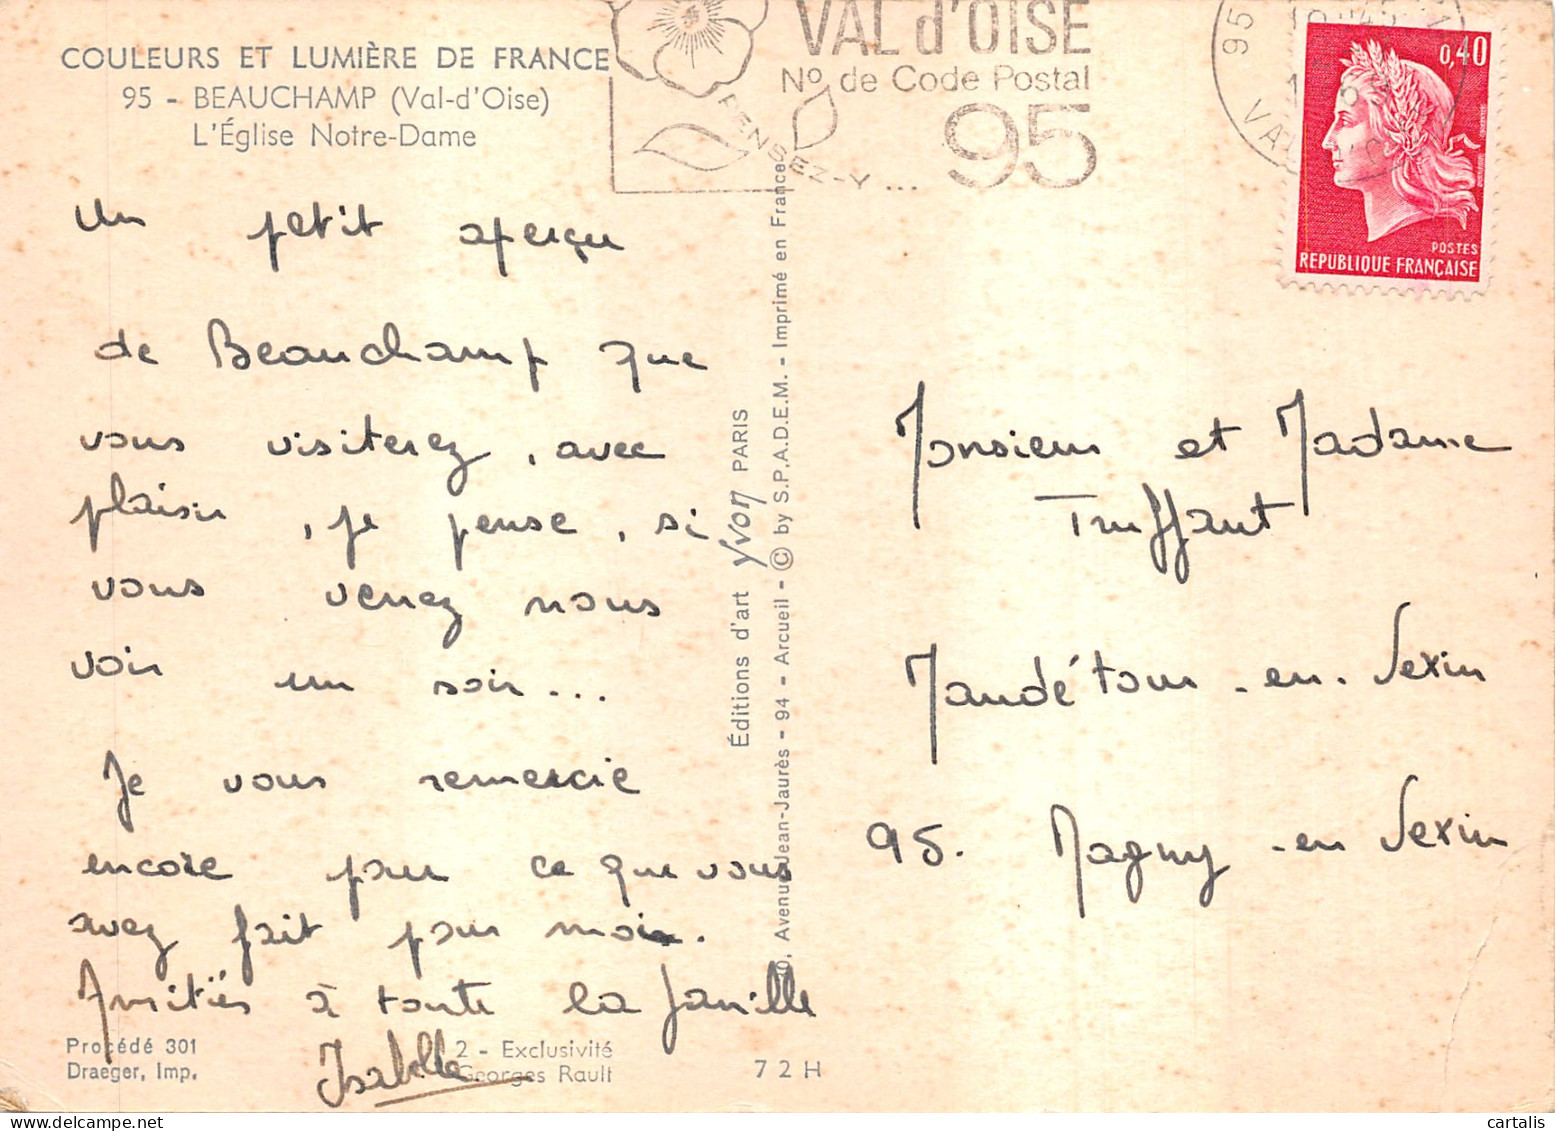 COULEURS ET LUMIÈRE DE FRANCE
95 - BEAUCHAMP (Val-d'Oise)
L'Église Notre-Dame
VAL d'OISE
No de Code Postal
95
PENSEZ-Y ...
95
0,40
POSTES
REPUBLIQUE FRANÇAISE
Un petit aperçu
de Beauchamp que
vous visiterez, avec
plaisir, je pense, si
vous venez nous
voir un soir...
Je vous remercie
encore pour ce que vous
avez fait pour moi.
Amitiés à toute la famille
Isabelle
Éditions d'art Yvon PARIS
10, Avenue Jean-Jaurès - 94 - Arcueil - © by S.P.A.D.E.M. - Imprimé en France
Monsieur et Madame
Truffaut
Maudétour-en-Vexin
95. Magny-en Vexin
Procédé 301
Draeger, Imp.
2 - Exclusivité
Georges Rault
72H
cartalis